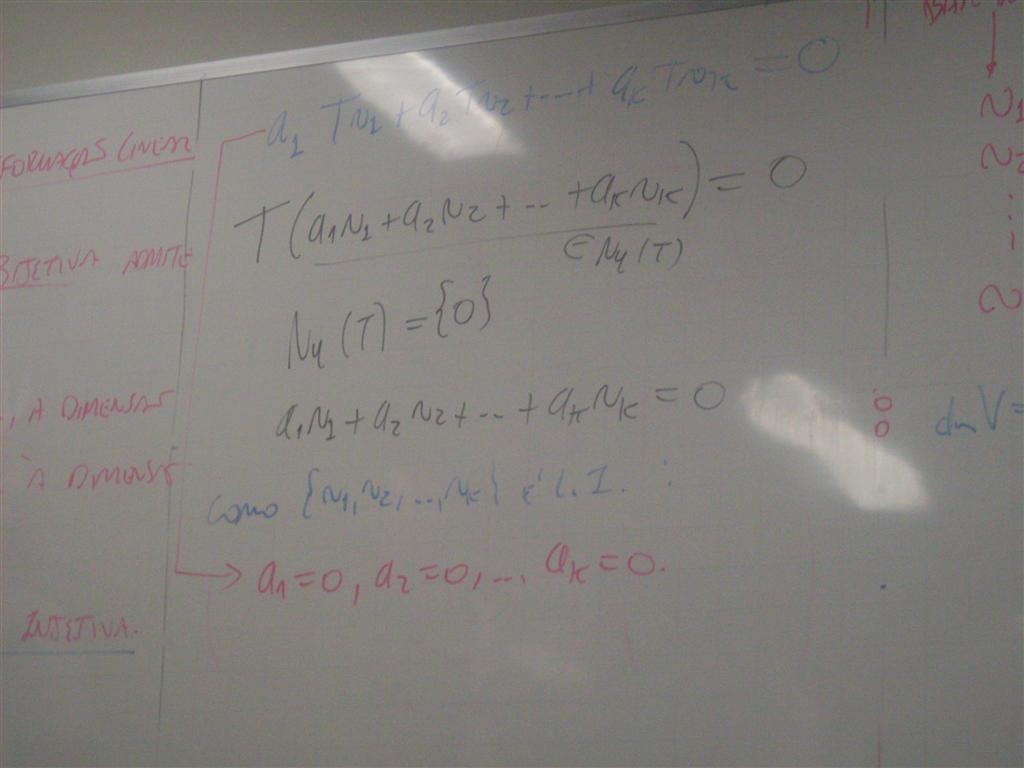 FORMAÇÕES LINEAR
BIJETIVA ADMITE
, A DIMENSÃO
À DIMENSÃ
INJETIVA.
a₁ Tv₁ + a₂ Tv₂ + ... + aₖ Tvₖ = 0
T(a₁v₁ + a₂v₂ + ... + aₖvₖ) = 0
∈ Nu(T)
Nu(T) = {0}
a₁v₁ + a₂v₂ + ... + aₖvₖ = 0
Como {v₁, v₂, ..., vₖ} é L.I. :
a₁ = 0, a₂ = 0, ... aₖ = 0.
v₁
v₂
dim V =